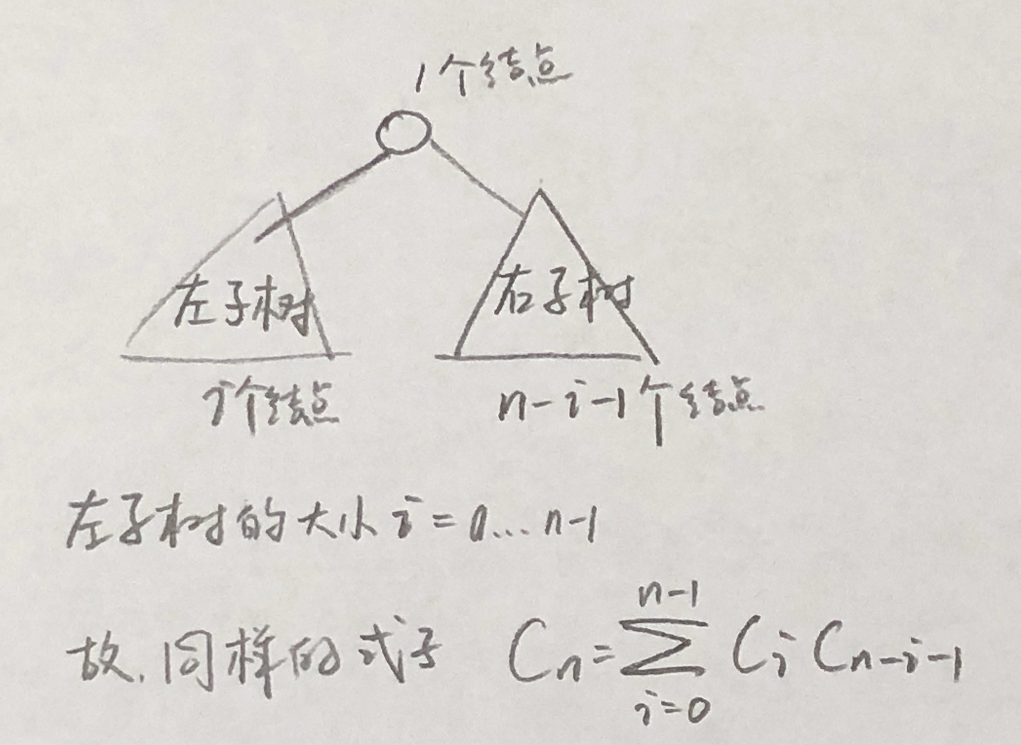 1个结点
左子树
右子树
i个结点
n-i-1个结点
左子树的大小 i=0...n-1
故.同样的式子 Cₙ=∑ᵢ₌₀ⁿ⁻¹ Cᵢ Cₙ₋ᵢ₋₁